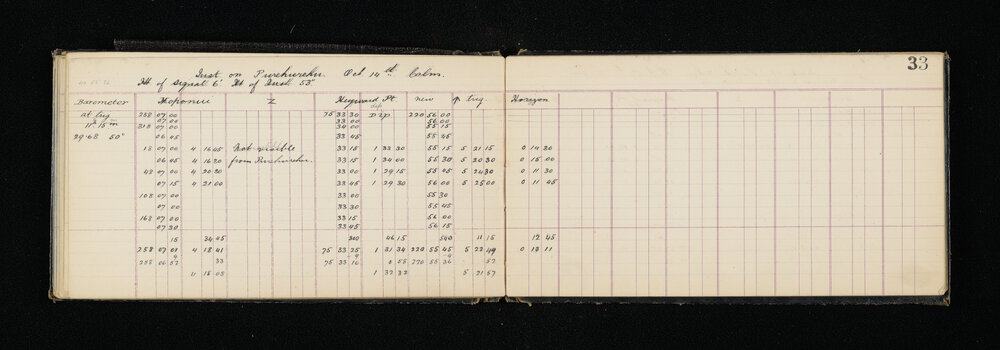 33
Inst on Purehurehu. Oct 14th Calm.
Ht of Signal 6' Ht of Inst 53"
Barometer Hoponui Z Heyward Pt. new trig Horizon
at trig 258 07 00 75 33 30 220 56 00
07 00 33 00 56 00
11h 15m 318 07 00 34 00 55 15
29.68 50° 06 45 33 45 55 45
18 07 00 4 16 45 Not visible 33 15 1 33 30 55 15 5 21 15 0 14 30
06 45 4 16 20 from Purehurehu. 33 15 1 34 00 55 30 5 20 30 0 15 00
43 07 00 4 20 30 33 00 1 29 15 55 45 5 24 30 0 11 30
07 15 4 21 00 33 45 1 29 30 56 00 5 25 00 0 11 45
108 07 00 33 00 55 30
07 00 33 30 55 45
168 07 00 33 15 56 00
07 30 33 45 56 15
15 34 45 300 46 15 540 11 15 12 45
258 07 01 4 18 41 75 33 25 1 31 34 220 55 45 5 22 49 0 13 11
9 9 9
258 06 52 33 75 33 16 0 55 220 55 36 52
4 18 08 1 32 32 5 21 57